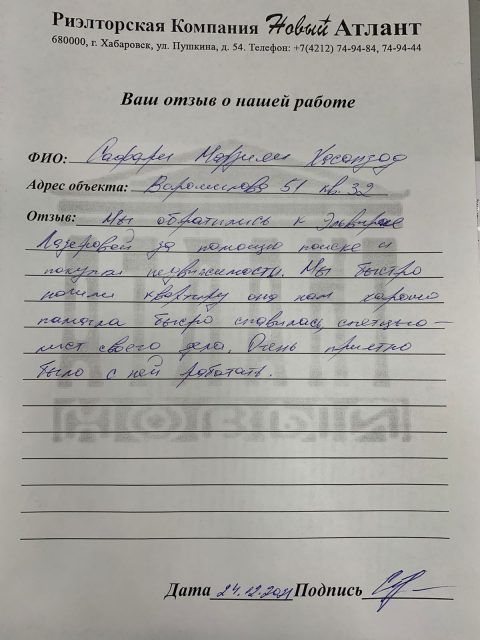 Риэлторская Компания Новый Атлант
680000, г. Хабаровск, ул. Пушкина, д. 54. Телефон: +7(4212) 74-94-84, 74-94-44
Ваш отзыв о нашей работе
ФИО: Сафари Хасанзод
Адрес объекта: 51 кв. 32
Отзыв: Мы обратились к Эльвире
Лазеровой за помощью поиске и
покупки недвижимости. Мы быстро
нашли квартиру она нам хорошо
памагла быстро справилась, спецыа-
лист своего дела. Очень приятно
было с ней работать.
Дата 24.12.2021 Подпись